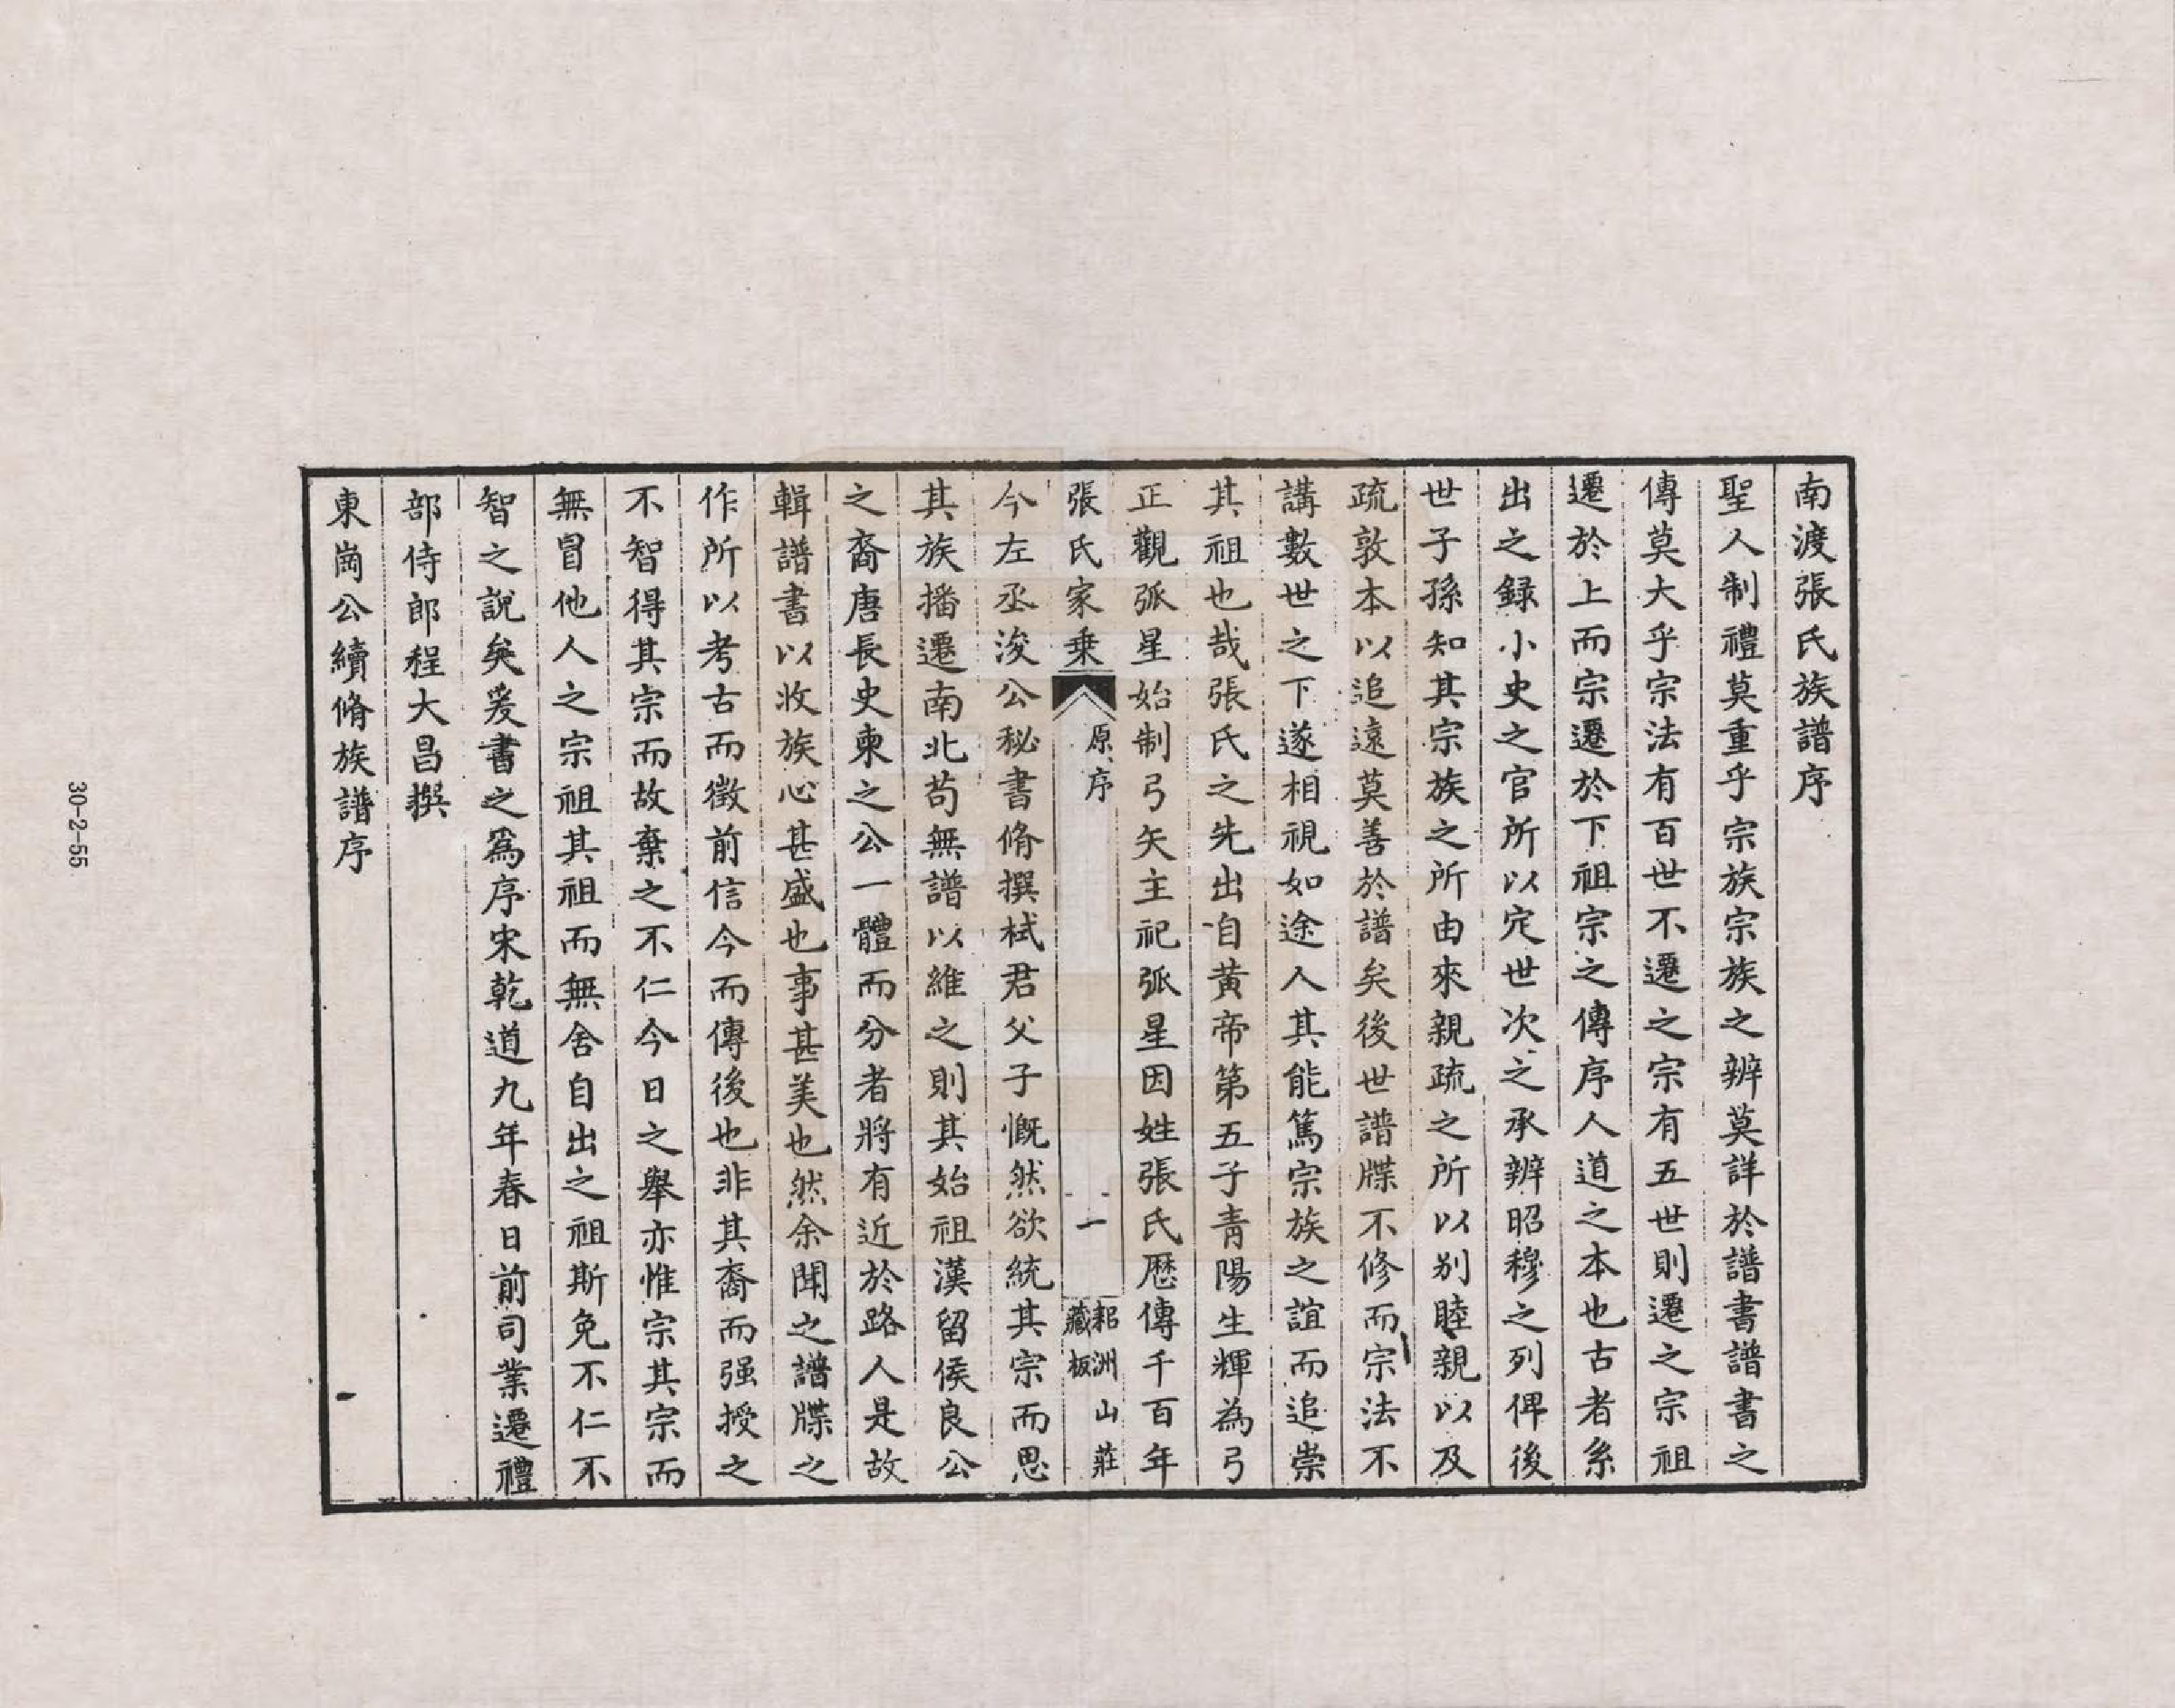 南渡張氏族譜序
聖人制禮莫重乎宗族宗族之辨莫詳於譜書譜書之
傳莫大乎宗法有百世不遷之宗有五世則遷之宗祖
遷於上而宗遷於下祖宗之傳序人道之本也古者系
出之録小史之官所以定世次之承辨昭穆之列俾後
世子孫知其宗族之所由來親疏之所以别睦親以及
疏敦本以追遠莫善於譜矣後世譜牒不修而宗法不
講數世之下遂相視如途人其能篤宗族之誼而追崇
其祖也哉張氏之先出自黃帝第五子青陽生輝為弓
正觀弧星始制弓矢主祀弧星因姓張氏歷傳千百年
張氏家乗
原序
一
耜洲山莊
藏板
今左丞浚公秘書脩撰栻君父子慨然欲統其宗而思
其族播遷南北苟無譜以維之則其始祖漢留侯良公
之裔唐長史柬之公一體而分者將有近於路人是故
輯譜書以收族心甚盛也事甚美也然余聞之譜牒之
作所以考古而徵前信今而傳後也非其裔而强授之
不智得其宗而故棄之不仁今日之舉亦惟宗其宗而
無冒他人之宗祖其祖而無舍自出之祖斯免不仁不
智之說矣爰書之為序宋乾道九年春日前司業遷禮
部侍郎程大昌撰
東崗公續脩族譜序
30-2-55